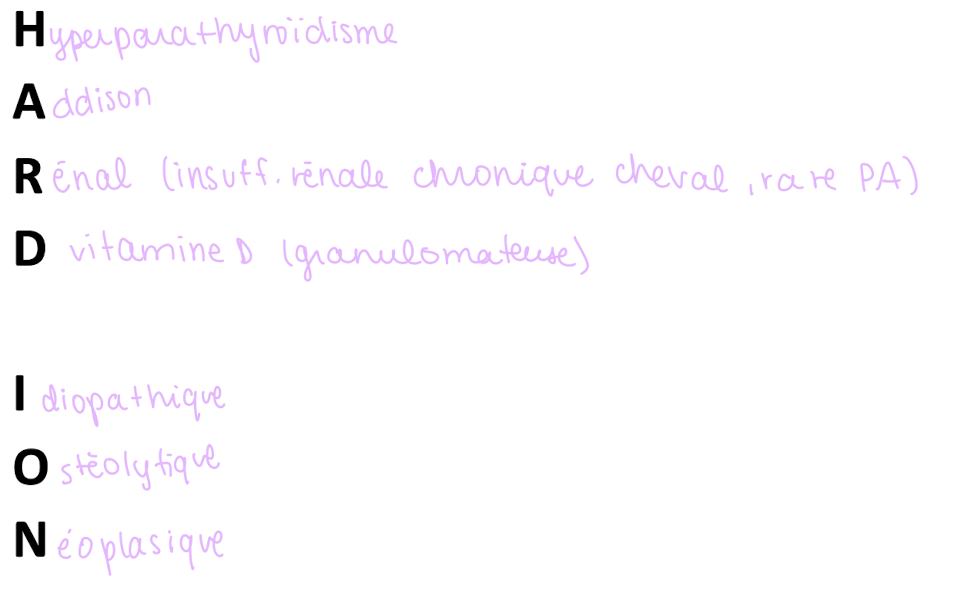 Hyperparathyroïdisme
Addison
Rénal (insuff. rénale chronique cheval, rare PA)
D vitamine D (granulomateuse)
Idiopathique
Ostéolytique
Néoplasique